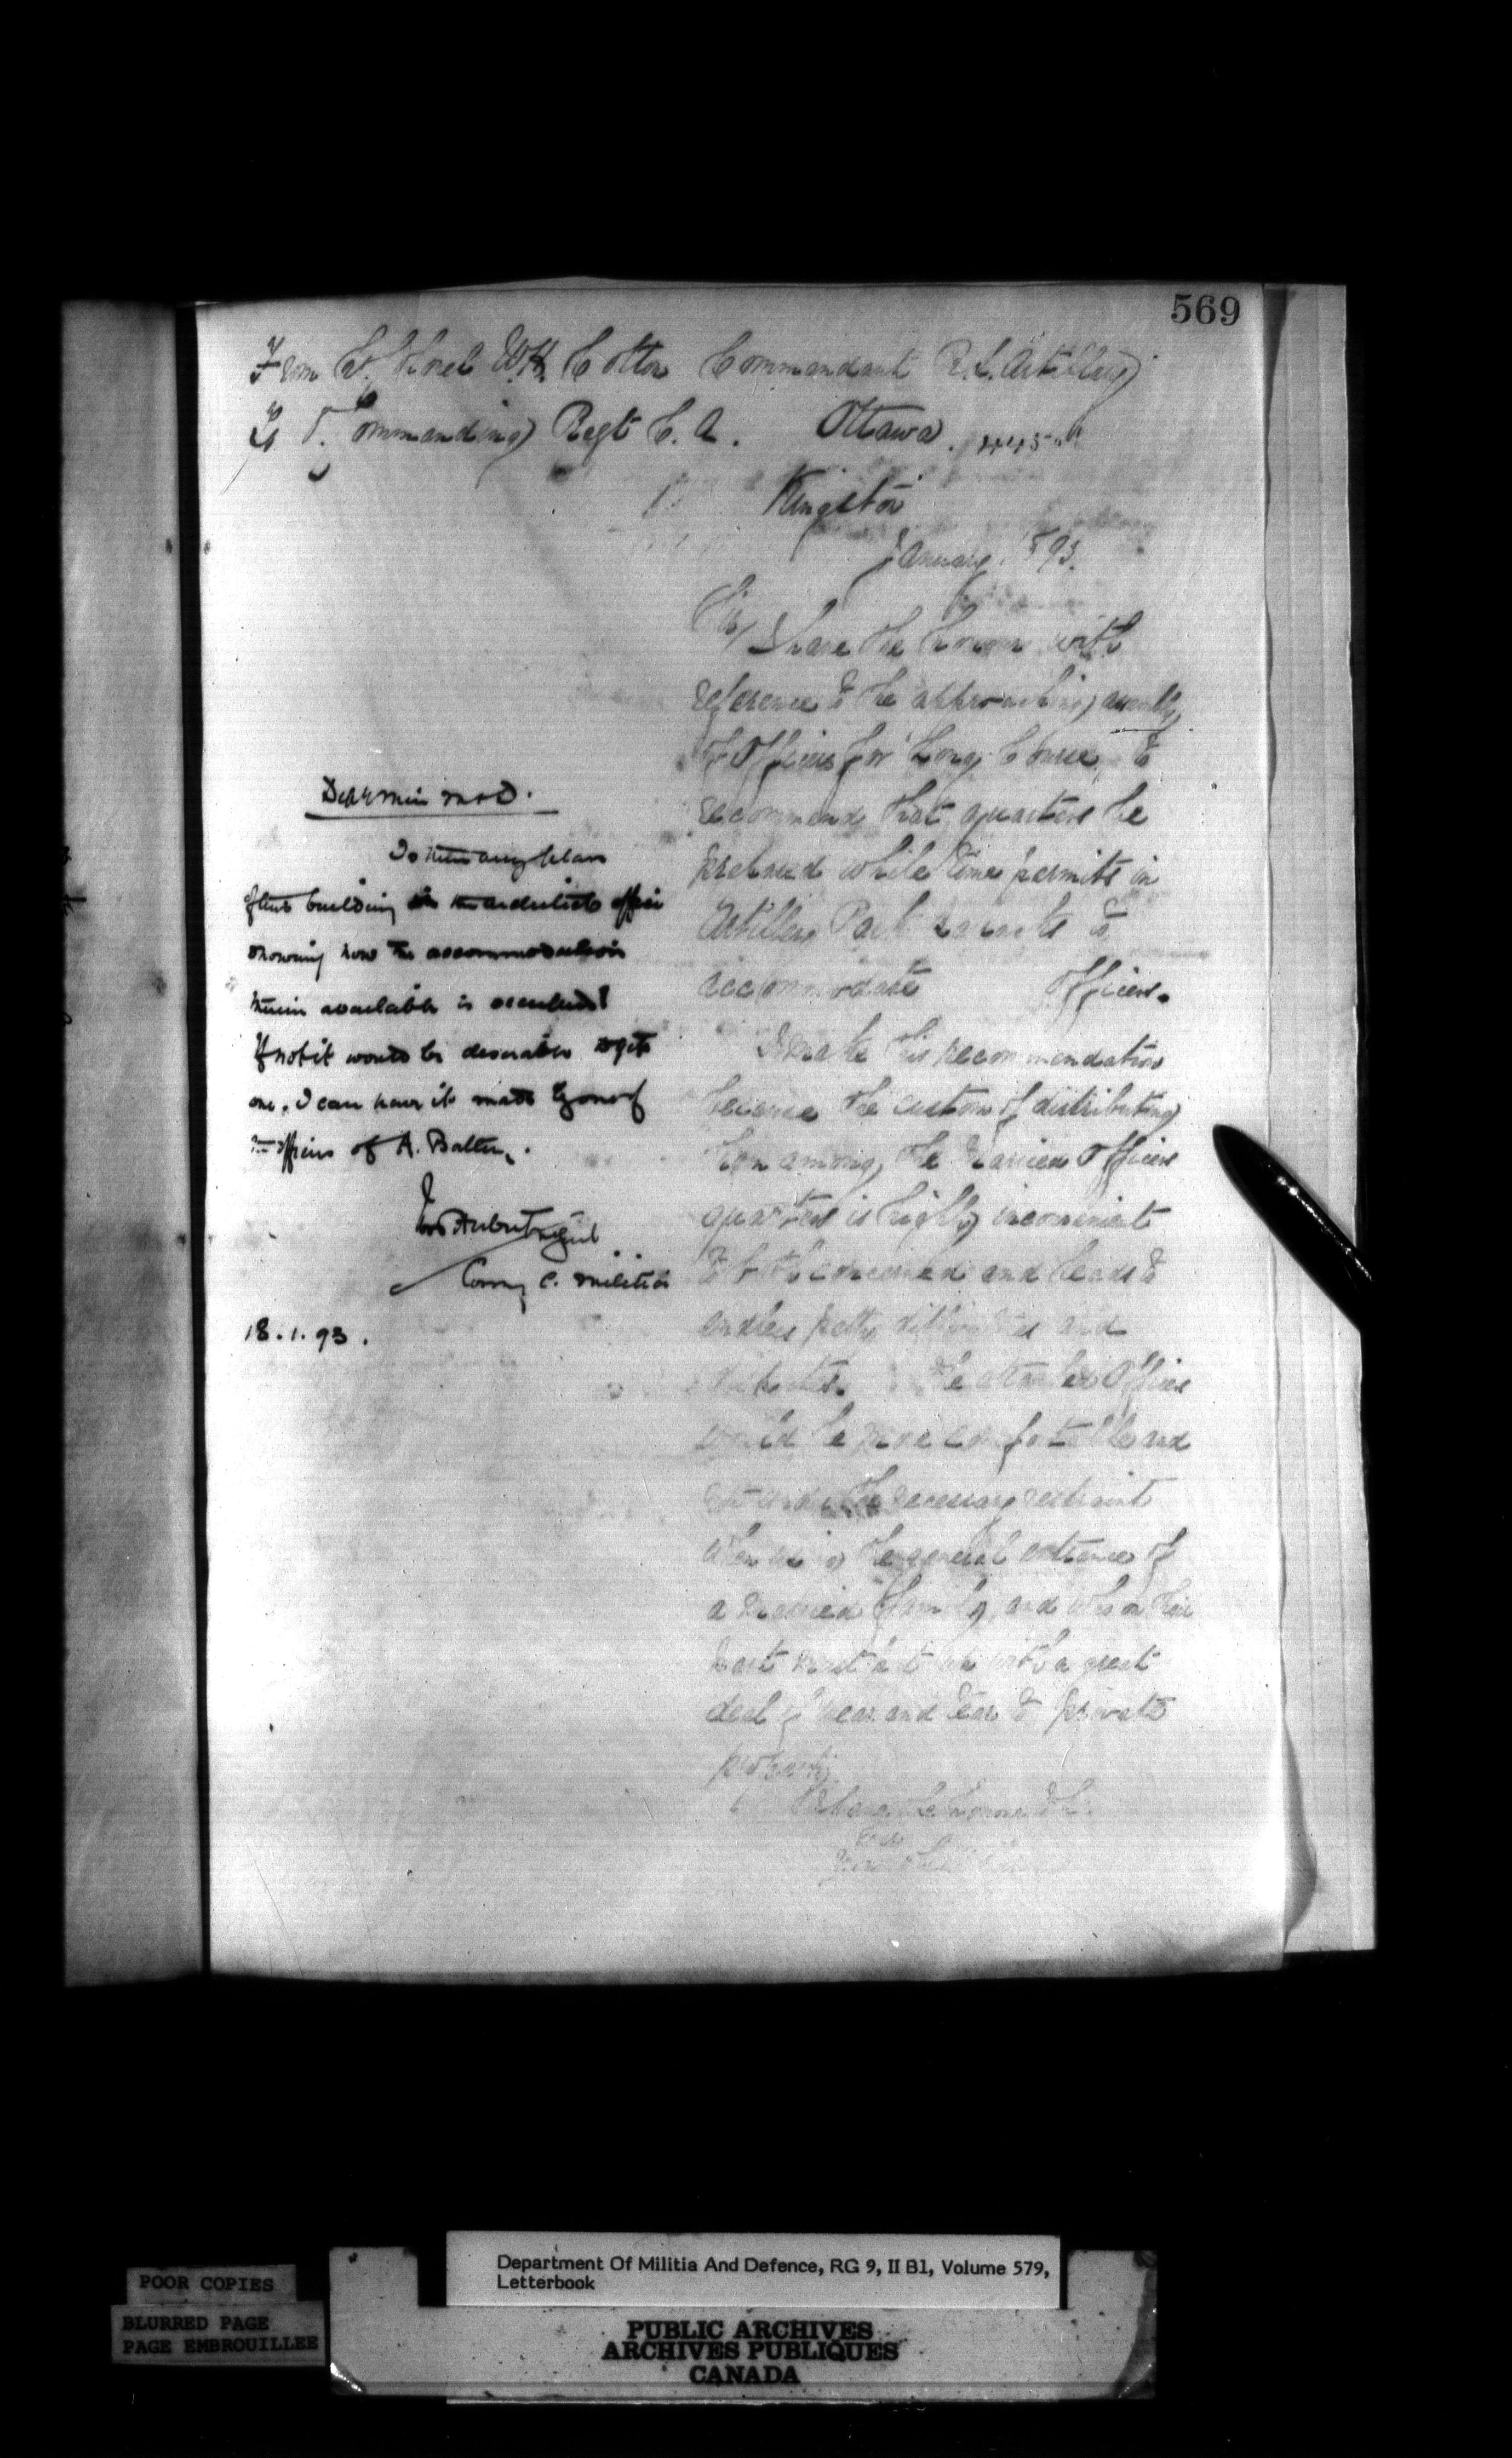 569
From Lt. Colonel W.H. Cotton Commandant R.S. Artillery
Commanding Regt C. A. Ottawa.
Kingston
January 93.
Sir,
I have the honour with
reference to the approaching assembly
of Officers for Long Course, to
recommend that quarters be
prepared while time permits in
Artillery Park Barracks to
accommodate Officers.
I make this recommendation
because the custom of distributing
them among the Married Officers
quarters is highly inconvenient
to both concerned and leads to
endless petty difficulties and
The attached Officers
would be more comfortable and
the necessary restraint
when using the general entrance of
a married family, and who on their
part must put up with a great
deal of wear and tear to private
property
I have the honour
Dep Min M & D.
Is there any plan
of this building in the architects office
showing how the accommodation
therein available is occupied?
If not it would be desirable to get
one. I can have it made by one of
the officers of A. Battery.
Ivor Herbert
Comg C. Militia
18.1.93.
POOR COPIES
BLURRED PAGE
PAGE EMBROUILLEE
Department Of Militia And Defence, RG 9, II B1, Volume 579,
Letterbook
PUBLIC ARCHIVES
ARCHIVES PUBLIQUES
CANADA